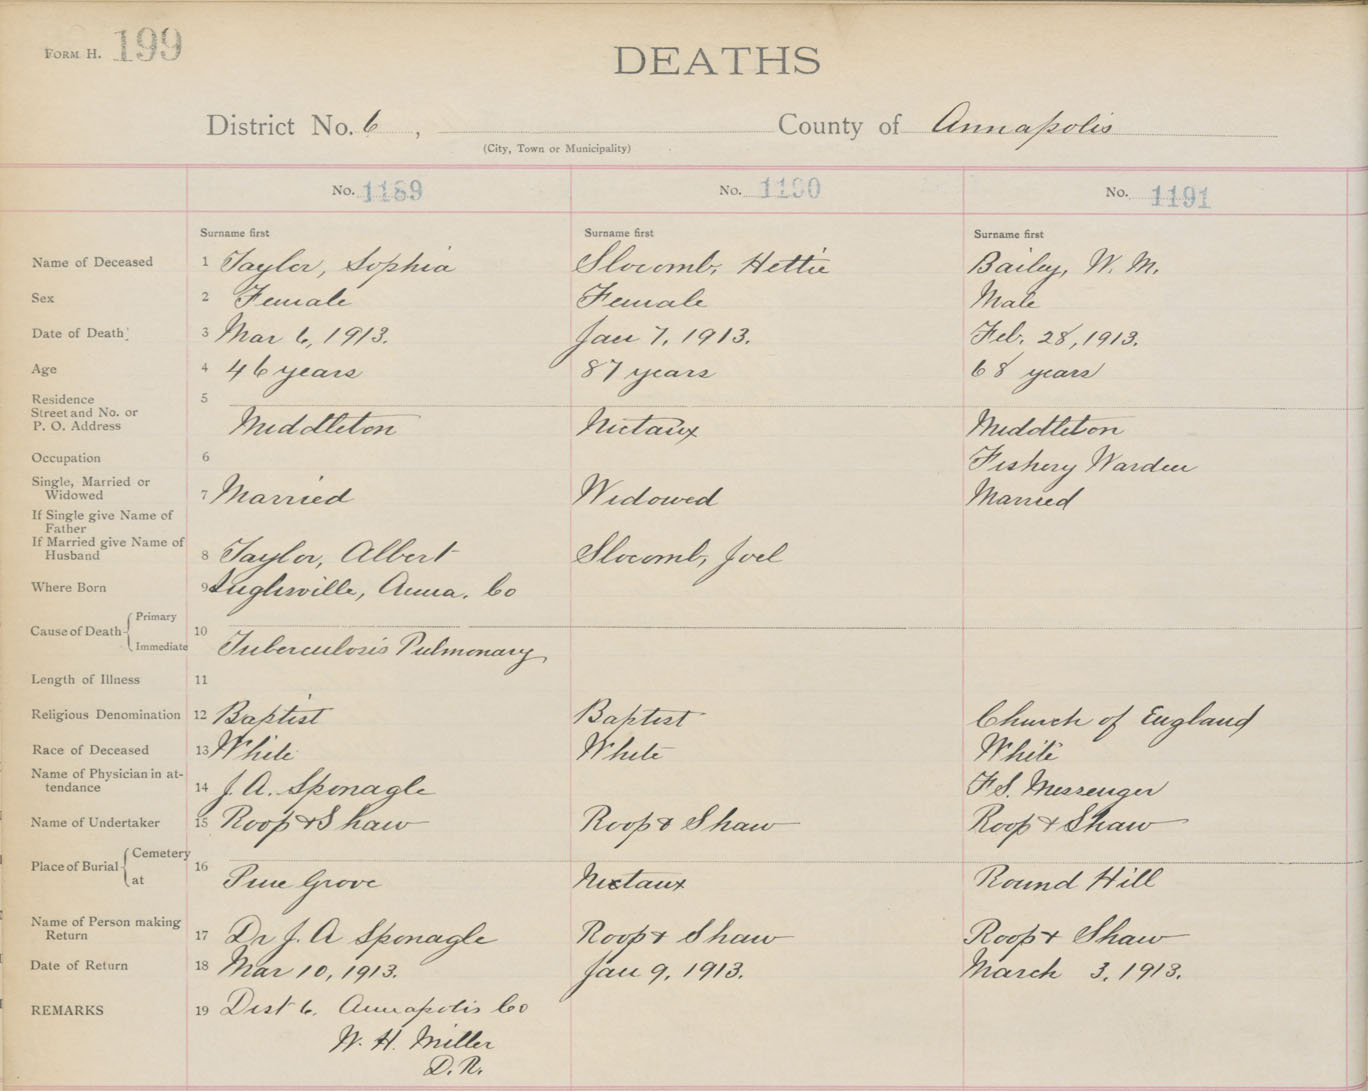 FORM H. 199
DEATHS
District No. 6, County of Annapolis
(City, Town or Municipality)
No. 1189 No. 1190 No. 1191
Surname first Surname first Surname first
Name of Deceased 1 Taylor, Sophia Slocomb, Hettie Bailey, W. M.
Sex 2 Female Female Male
Date of Death 3 Mar 6, 1913. Jan 7, 1913. Feb. 28, 1913.
Age 4 46 years 87 years 68 years
Residence 5
Street and No. or
P. O. Address Middleton Nictaux Middleton
Occupation 6 Fishery Warden
Single, Married or
Widowed 7 Married Widowed Married
If Single give Name of
Father
If Married give Name of
Husband 8 Taylor, Albert Slocomb, Joel
Where Born 9 Inglisville, Anna. Co
Cause of Death Primary 10
Immediate Tuberculosis Pulmonary
Length of Illness 11
Religious Denomination 12 Baptist Baptist Church of England
Race of Deceased 13 White White White
Name of Physician in at-
tendance 14 J. A. Sponagle F S. Messenger
Name of Undertaker 15 Roop & Shaw Roop & Shaw Roop & Shaw
Place of Burial Cemetery 16
at Pine Grove Nictaux Round Hill
Name of Person making
Return 17 Dr J. A Sponagle Roop & Shaw Roop & Shaw
Date of Return 18 Mar 10, 1913. Jan 9, 1913. March 3, 1913.
REMARKS 19 Dist 6. Annapolis Co
W. H. Miller
D. R.